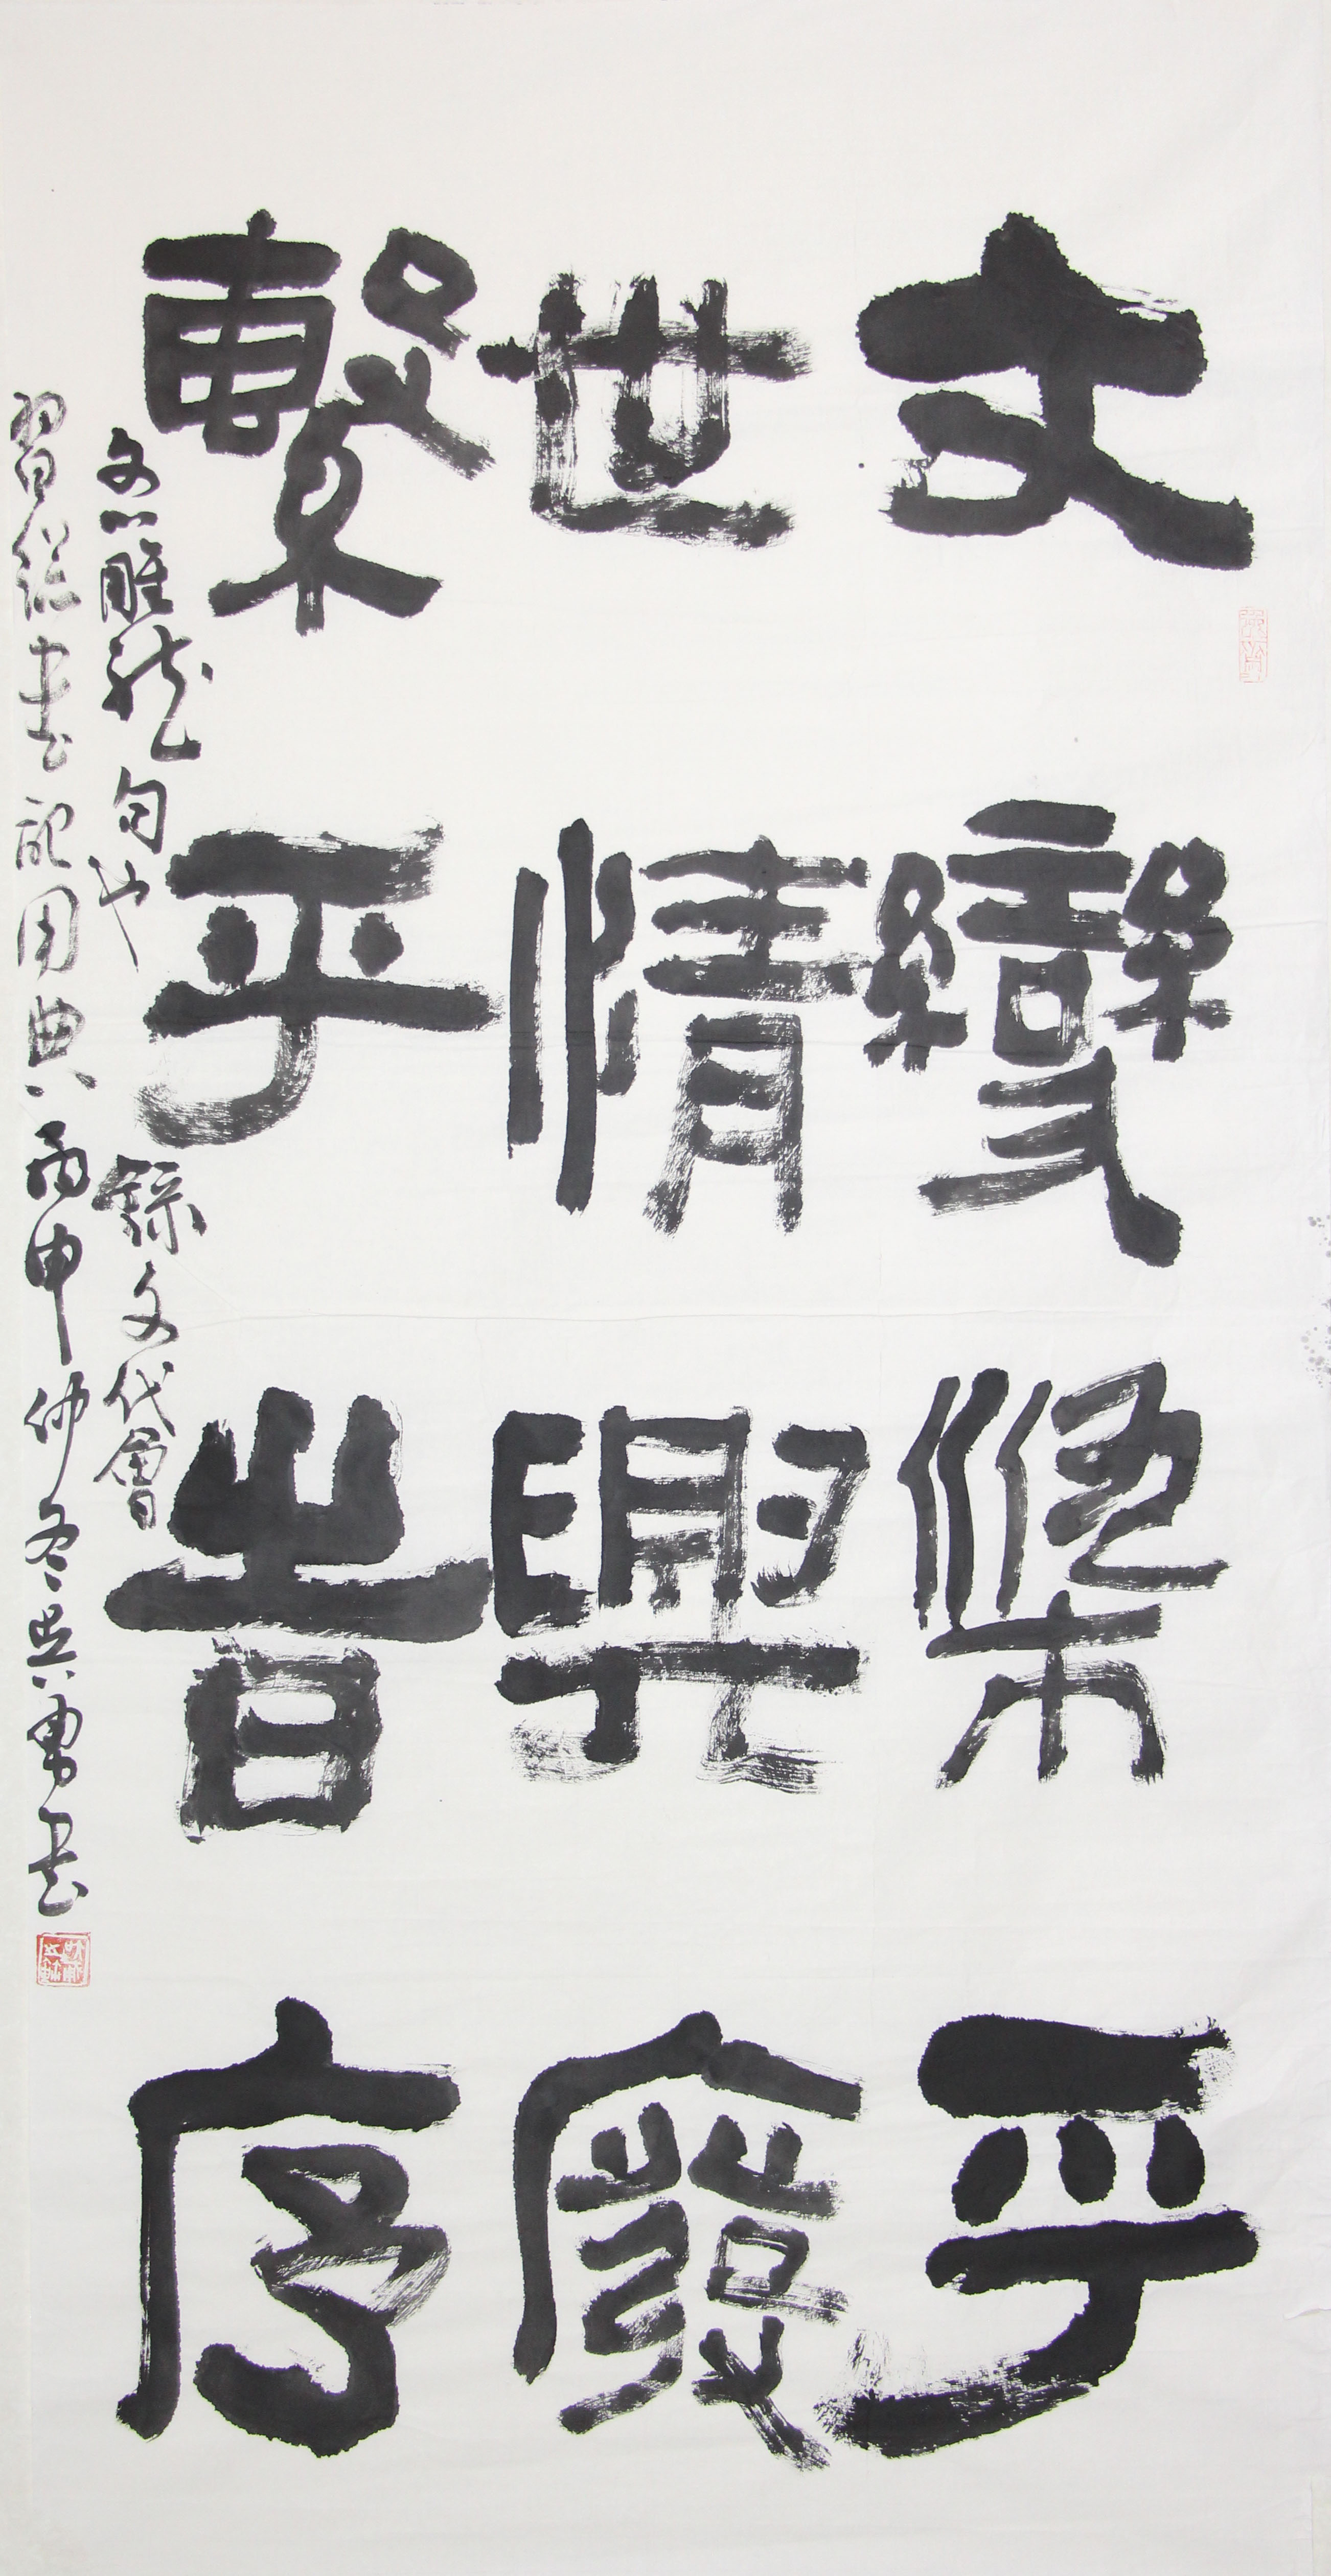 文變染乎
世情興廢
繫乎旹序
文心雕龍句也 錄文代會
習總書記用典 丙申仲冬 勇书